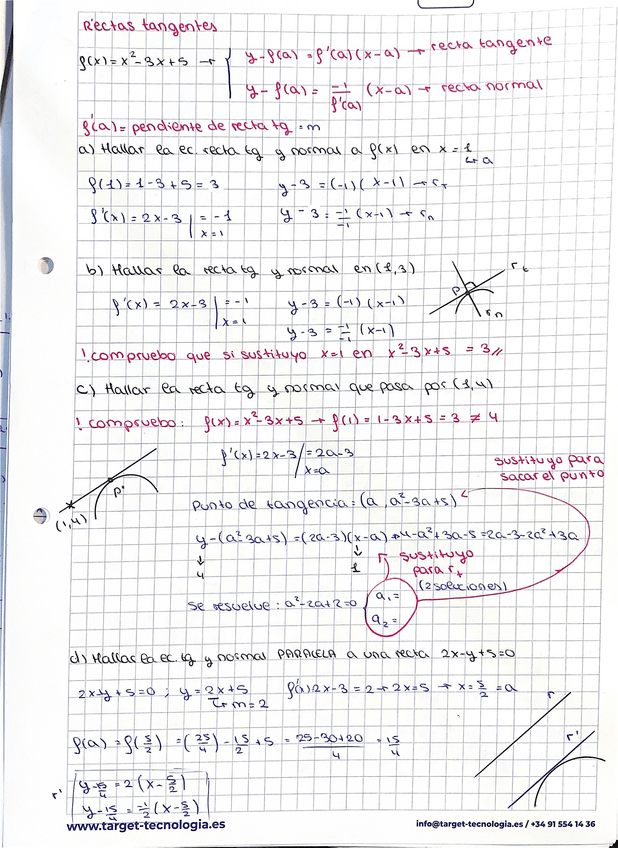 Rectas tangentes
f(x) = x²-3x+5 → { y-f(a) = f'(a)(x-a) → recta tangente
y-f(a) = -1/f'(a) (x-a) → recta normal
f'(a) = pendiente de recta tg = m
a) Hallar la ec. recta tg y normal a f(x) en x = 1
↳ a
f(1) = 1-3+5 = 3 y-3 = (-1)(x-1) → rτ
f'(x) = 2x-3 | x=1 = -1 y-3 = -1/-1 (x-1) → rn
b) Hallar la recta tg y normal en (1,3)
f'(x) = 2x-3 | x=1 = -1 y-3 = (-1)(x-1)
y-3 = -1/-1 (x-1)
P rt rn
! compruebo que si sustituyo x=1 en x²-3x+5 = 3//
c) Hallar la recta tg y normal que pasa por (1,4)
! compruebo: f(x) = x²-3x+5 → f(1) = 1-3x+5 = 3 ≠ 4
f'(x) = 2x-3 | x=a = 2a-3
sustituyo para
sacar el punto
P'
(1,4)
Punto de tangencia: (a, a²-3a+5)
y-(a²-3a+5) = (2a-3)(x-a) → 4-a²+3a-5 = 2a-3-2a²+3a
↓ 4 ↓ 1
sustituyo
para rt
(2 soluciones)
Se resuelve: a²-2a+2=0 { a₁ =
a₂ =
d) Hallar la ec. tg y normal PARALELA a una recta 2x-y+5=0
2x-y+5=0 ; y = 2x+5 f'(x) 2x-3 = 2 → 2x=5 → x = 5/2 = a
↳ m=2
r
r'
f(a) = f(5/2) = (25/4) - 15/2 + 5 = 25-30+20/4 = 15/4
r' y-15/4 = 2(x-5/2)
y-15/4 = -1/2 (x-5/2)
www.target-tecnologia.es info@target-tecnologia.es / +34 91 554 14 36